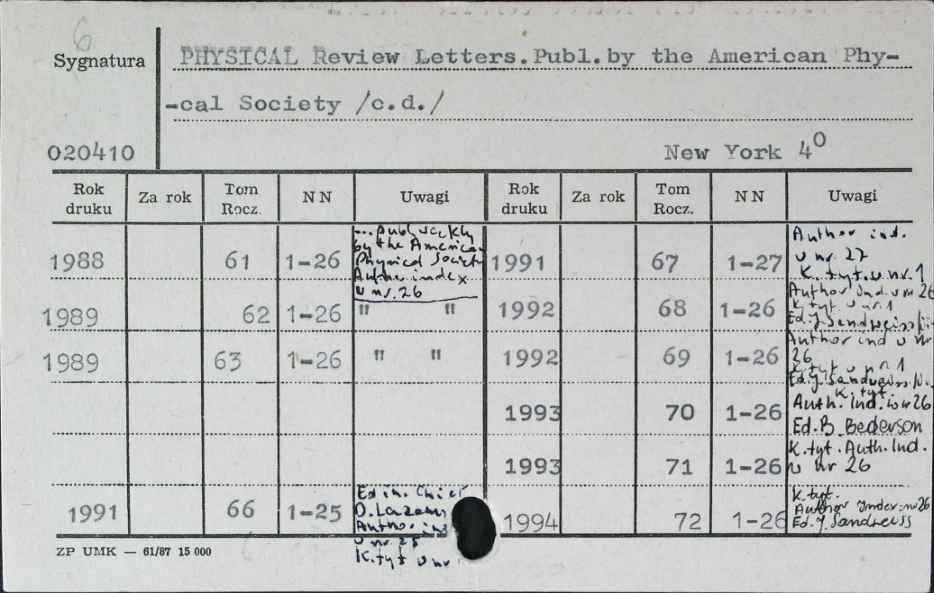 6
Sygnatura
PHYSICAL Review Letters.Publ.by the American Phy-
-cal Society /c.d./
020410
New York 4⁰
Rok druku Za rok Tom Rocz. NN Uwagi Rok druku Za rok Tom Rocz. NN Uwagi
1988 61 1-26
... publ weekly
by the American
Physical Society
Author index
u nr. 26
1991 67 1-27
Author ind.
u nr 27
K. tyt. u nr. 1
1989 62 1-26 " "
1992 68 1-26
Author Ind u nr 26
K tyt u nr 1
Ed. J. Sandweiss
1989 63 1-26 " "
1992 69 1-26
Author ind u nr
26
K tyt u nr 1
Ed. J. Sandweiss
1993 70 1-26
K. tyt.
Auth. Ind. u nr 26
Ed. B. Bederson
1993 71 1-26
K. tyt. Auth. Ind.
u nr 26
1991 66 1-25
Ed in. Chief
D. Lazarus
Author ind
u nr. 25
K. tyt u nr
1994 72 1-26
K. tyt.
Author Index nr 26
Ed. J. Sandweiss
ZP UMK — 61/87 15 000